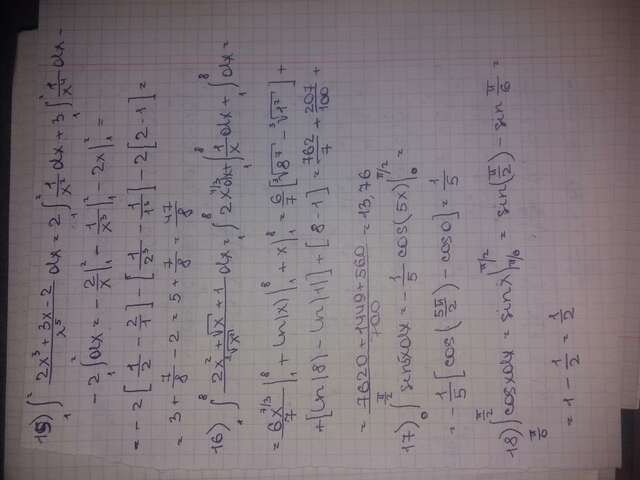 15) ∫₁² (2x³+3x-2)/x⁵ dx = 2∫₁² 1/x² dx + 3∫₁² 1/x⁴ dx -
- 2∫₁² dx = - 2/x |₁² - 1/x³ |₁² - 2x |₁² =
= - 2 [1/2 - 2/1] - [1/2³ - 1/1³] - 2 [2-1] =
= 3 + 7/8 - 2 = 5 + 7/8 = 47/8
16) ∫₁⁸ (2x²+√x+1)/∛x² dx = ∫₁⁸ 2x^(4/3) dx + ∫₁⁸ 1/x dx + ∫₁⁸ dx =
= 6x^(7/3)/7 |₁⁸ + ln|x| |₁⁸ + x |₁⁸ = 6/7 [∛8⁷ - ∛1²] +
+ [ln|8| - ln|1|] + [8-1] = 762/7 + 207/100 +
= (7620+1449+560)/700 = 13,76
17) ∫₀^(π/2) sin5xdx = - 1/5 cos(5x) |₀^(π/2) =
= - 1/5 [cos(5π/2) - cos0] = 1/5
18) ∫_(π/6)^(π/2) cosxdx = sinx |_(π/6)^(π/2) = sin(π/2) - sin π/6 =
= 1 - 1/2 = 1/2